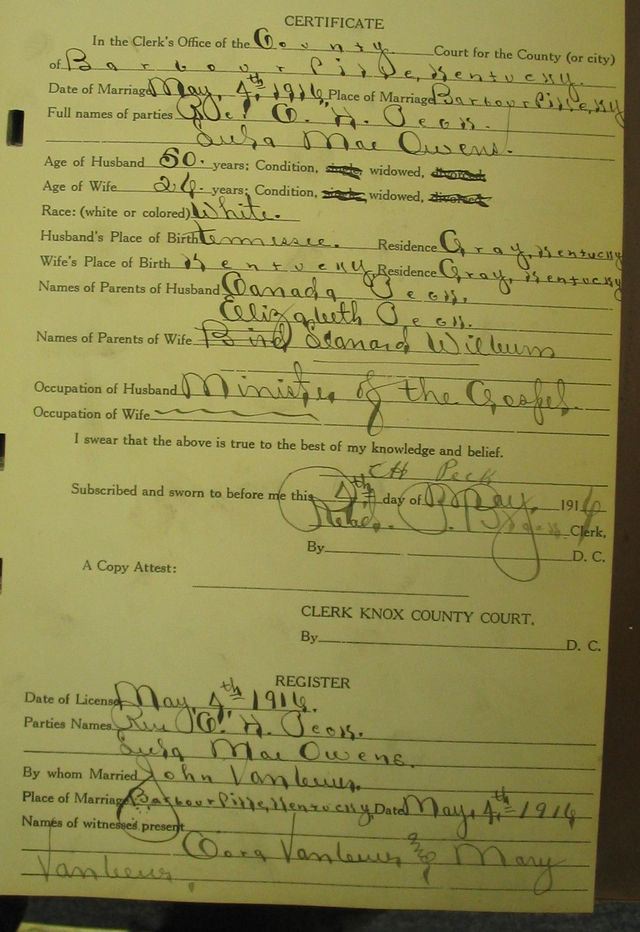 CERTIFICATE
In the Clerk's Office of the County Court for the County (or city)
of Barbourville, Kentucky.
Date of Marriage May, 4th, 1916, Place of Marriage Barbourville, Ky
Full names of parties Rev. C. H. Peck.
Mae Owens.
Age of Husband 50. years; Condition, single widowed, divorced
Age of Wife 26. years; Condition, single widowed, divorced
Race: (white or colored) White.
Husband's Place of Birth Tennessee. Residence Gray, Kentucky
Wife's Place of Birth Kentucky, Residence Gray, Kentucky
Names of Parents of Husband Canada Peck,
Elizabeth Peck.
Names of Parents of Wife Bird
Occupation of Husband Minister of the Gospel.
Occupation of Wife
I swear that the above is true to the best of my knowledge and belief.
CH Peck
Subscribed and sworn to before me this 4th day of May, 1916
Read. Clerk,
By D. C.
A Copy Attest:
CLERK KNOX COUNTY COURT.
By D. C.
REGISTER
Date of License May, 4th 1916.
Parties Names Rev C. H. Peck.
Mae Owens.
By whom Married John
Place of Marriage Barbourville, Kentucky, Date May, 4th 1916
Names of witnesses present
Cora and Mary